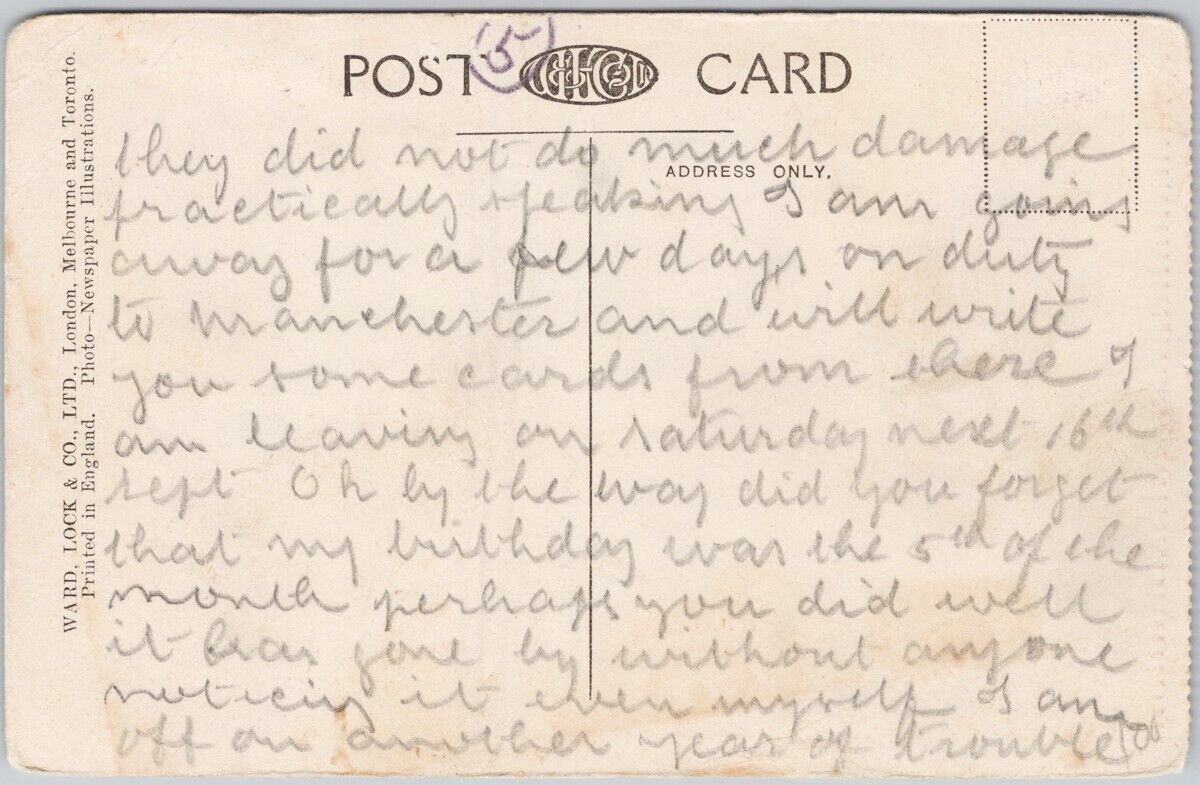 (5)
POST W.L.&Co.Ld CARD
ADDRESS ONLY.
WARD, LOCK & CO., LTD., London, Melbourne and Toronto.
Printed in England. Photo—Newspaper Illustrations.
they did not do much damage
practically speaking I am going
away for a few days on duty
to Manchester and will write
you some cards from there I
am leaving on saturday next 16th
sept Oh by the way did you forget
that my birthday was the 5th of the
month perhaps you did well
it has gone by without anyone
noticing it even myself I am
off on another year of trouble